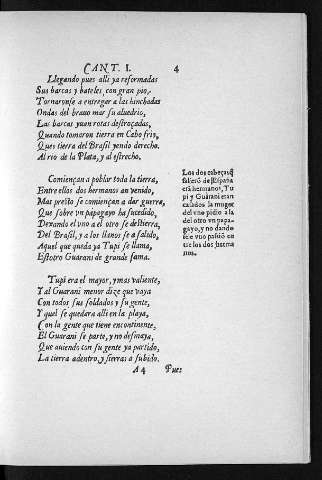 CANT. I. 4
Llegando pues alli ya reformadas
Sus barcas y bateles, con gran pio,
Tornaronse a entregar a las hinchadas
Ondas del brauo mar su aluedrio,
Las barcas yuan rotas destroçadas,
Quando tomaron tierra en Cabo frio,
Ques tierra del Brasil yendo derecho.
Al rio de la Plata, y al estrecho.
Comiençan a poblar toda la tierra,
Entre ellos dos hermanos an venido,
Mas presto se comiençan a dar guerra,
Que sobre vn papagayo ha sucedido,
Dexando el vno a el otro se destierra,
Del Brasil, y a los llanos se a salido,
Aquel que queda ya Tupi se llama,
Estotro Guarani de grande fama.
Los dos cabeças q̃
salierõ de España
erã hermanos, Tu
pi y Guarani eran
casados la muger
del vno pidio a la
del otro vn papa
gayo, y no dando
se vuo passiõ en
tre los dos
Tupi era el mayor, y mas valiente,
Y al Guarani menor dize que vaya
Con todos sus soldados y su gente,
Y quel se quedara alli en la playa,
Con la gente que tiene encontinente,
El Guarani se parte, y no desmaya,
Que auiendo con su gente ya partido,
La tierra adentro, y sierras a subido.
A4 Pues